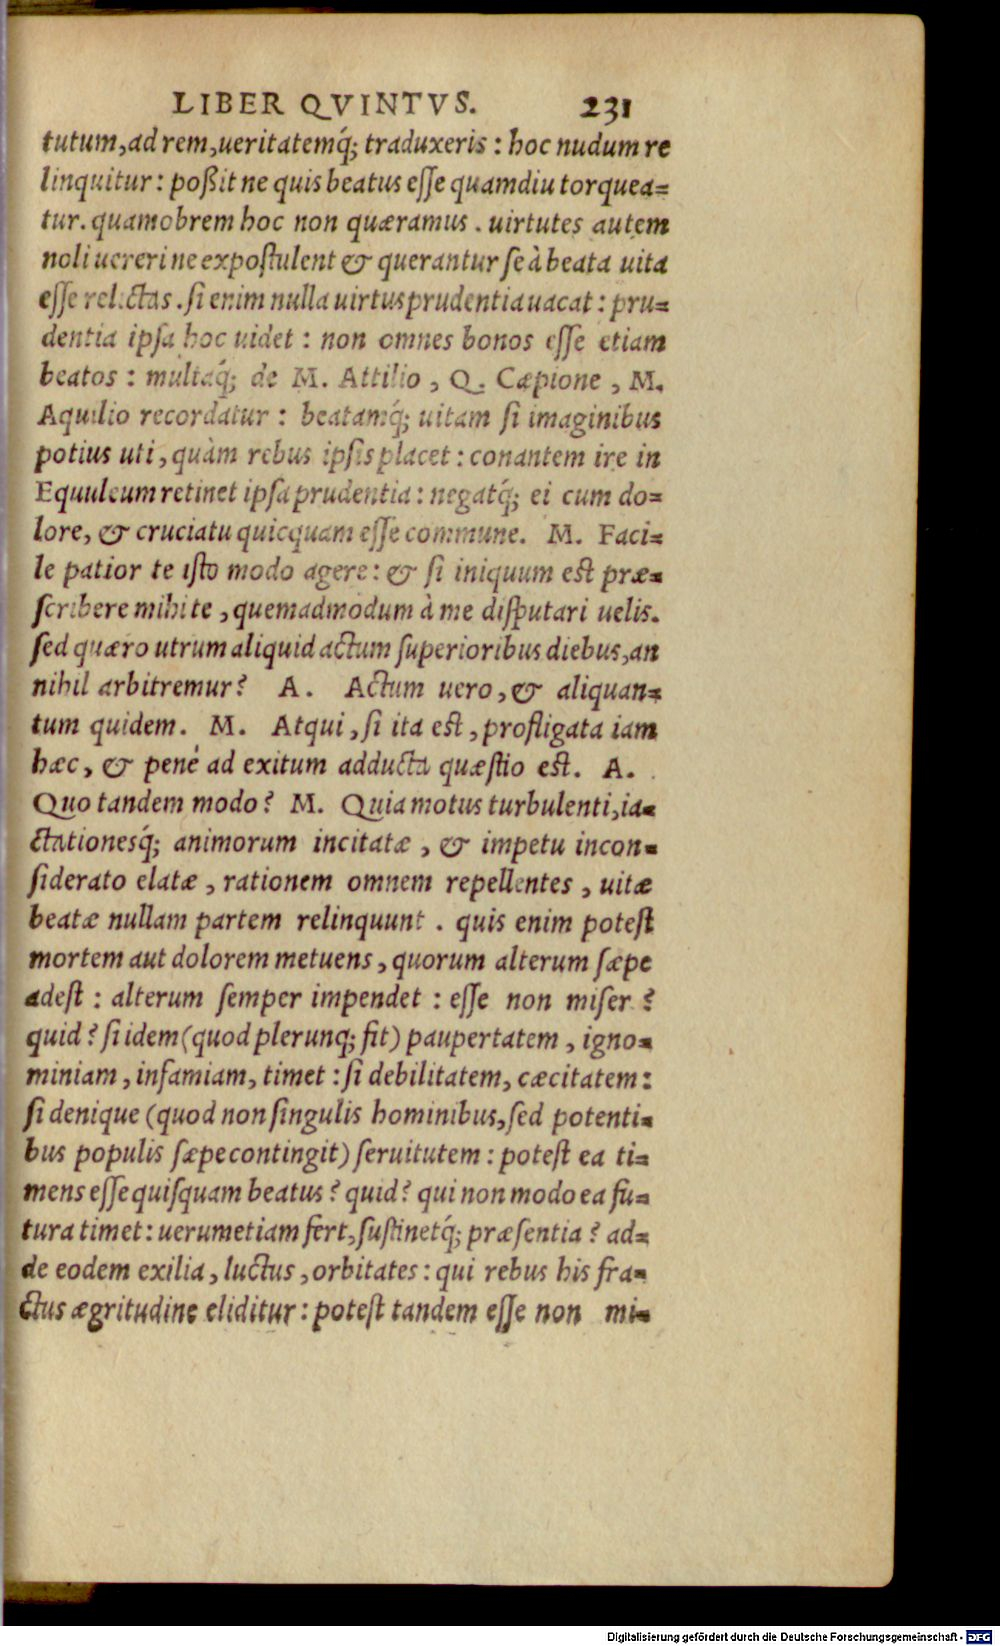 LIBER QVINTVS. 231
tutum, ad rem, ueritatemq́; traduxeris : hoc nudum re
linquitur : poßit ne quis beatus eſſe quamdiu torquea-
tur. quamobrem hoc non quæramus . uirtutes autem
noli uereri ne expoſtulent & querantur ſe à beata uita
eſſe relictas . ſi enim nulla uirtus prudentia uacat : pru-
dentia ipſa hoc uidet : non omnes bonos eſſe etiam
beatos : multaq́; de M. Attilio , Q. Cæpione , M.
Aquilio recordatur : beatamq́; uitam ſi imaginibus
potius uti , quàm rebus ipſis placet : conantem ire in
Equuleum retinet ipſa prudentia : negatq́; ei cum do-
lore, & cruciatu quicquam eſſe commune. M. Faci-
le patior te iſto modo agere : & ſi iniquum eſt præ-
ſcribere mihi te , quemadmodum à me diſputari uelis.
ſed quæro utrum aliquid actum ſuperioribus diebus, an
nihil arbitremur? A. Actum uero , & aliquan-
tum quidem. M. Atqui , ſi ita eſt , profligata iam
hæc , & pené ad exitum adducta quæſtio eſt. A.
Quo tandem modo? M. Quia motus turbulenti, ia-
ctationesq́; animorum incitatæ , & impetu incon-
ſiderato elatæ , rationem omnem repellentes , uitæ
beatæ nullam partem relinquunt . quis enim poteſt
mortem aut dolorem metuens , quorum alterum ſæpe
adeſt : alterum ſemper impendet : eſſe non miſer ?
quid ? ſi idem (quod plerunq; fit) paupertatem , igno-
miniam , infamiam, timet : ſi debilitatem, cæcitatem :
ſi denique (quod non ſingulis hominibus, ſed potenti-
bus populis ſæpe contingit) ſeruitutem : poteſt ea ti-
mens eſſe quiſquam beatus ? quid ? qui non modo ea fu-
tura timet : uerumetiam fert, ſuſtinetq́; præſentia ? ad-
de eodem exilia , luctus , orbitates : qui rebus his fra-
ctus ægritudine eliditur : poteſt tandem eſſe non mi-
Digitalisierung gefördert durch die Deutsche Forschungsgemeinschaft - DFG